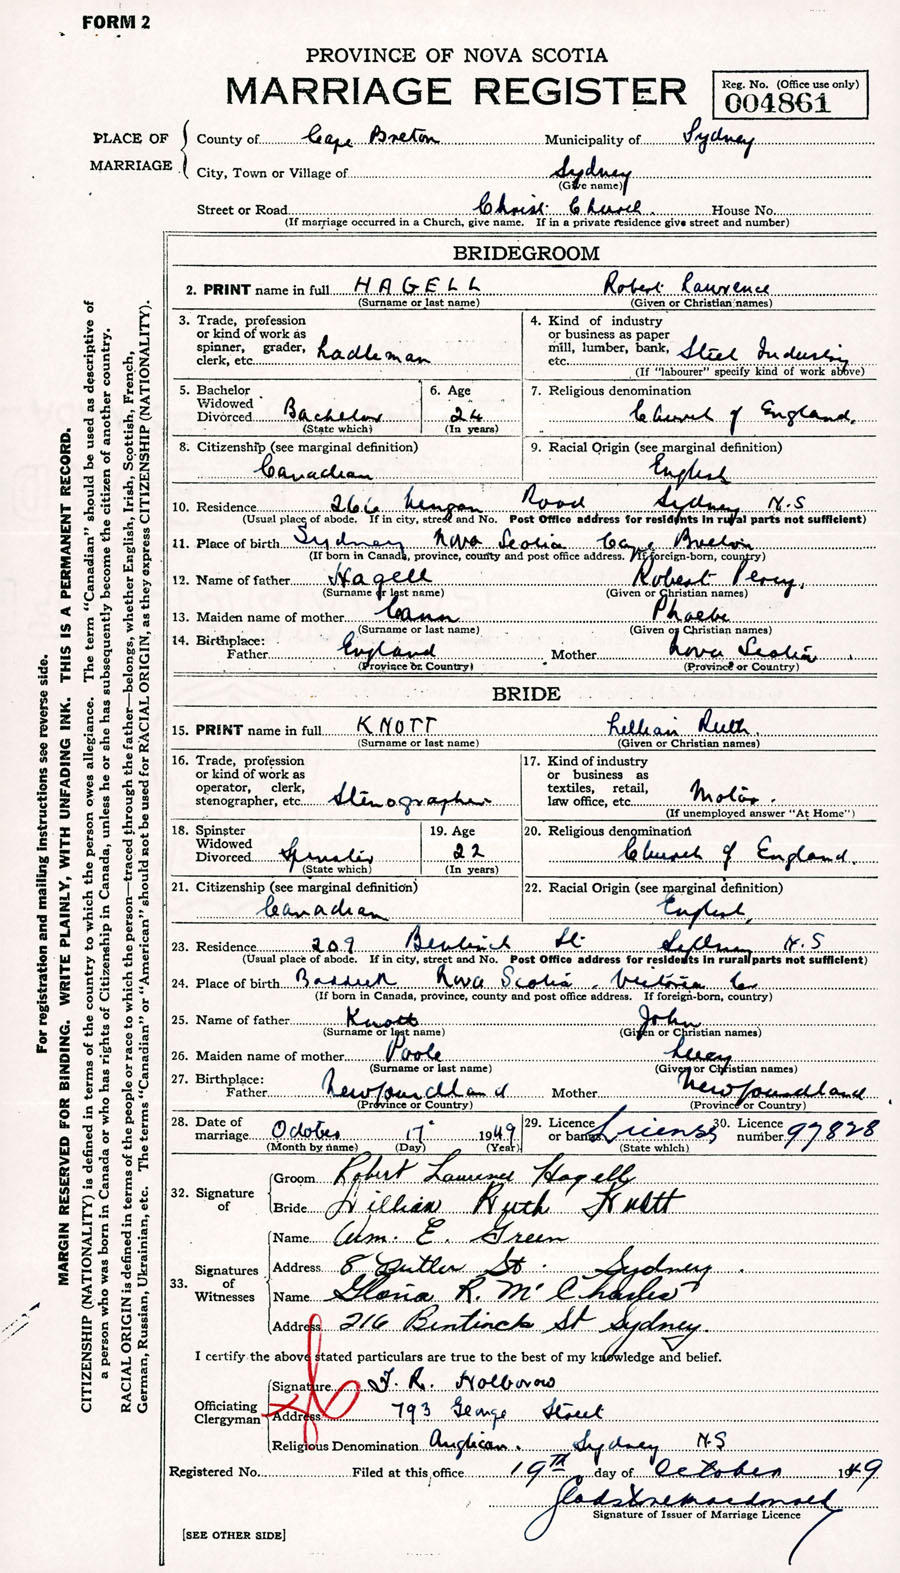 FORM 2
PROVINCE OF NOVA SCOTIA
MARRIAGE REGISTER
Reg. No. (Office use only)
004861
PLACE OF MARRIAGE
County of Cape Breton Municipality of Sydney
City, Town or Village of Sydney
(Give name)
Street or Road Christ Church. House No.
(If marriage occurred in a Church, give name. If in a private residence give street and number)
BRIDEGROOM
2. PRINT name in full HAGELL Robert Lawrence
(Surname or last name) (Given or Christian names)
3. Trade, profession or kind of work as spinner, grader, clerk, etc. Ladleman
4. Kind of industry or business as paper mill, lumber, bank, etc. Steel Industry
(If "labourer" specify kind of work above)
5. Bachelor Widowed Divorced Bachelor
(State which)
6. Age 24
(In years)
7. Religious denomination
Church of England.
8. Citizenship (see marginal definition)
Canadian
9. Racial Origin (see marginal definition)
English
10. Residence 266 Road Sydney N.S
(Usual place of abode. If in city, street and No. Post Office address for residents in rural parts not sufficient)
11. Place of birth Sydney Nova Scotia Cape Breton
(If born in Canada, province, county and post office address. If foreign-born, country)
12. Name of father Hagell Robert Percy.
(Surname or last name) (Given or Christian names)
13. Maiden name of mother Cann Phoebe
(Surname or last name) (Given or Christian names)
14. Birthplace:
Father England Mother Nova Scotia
(Province or Country) (Province or Country)
BRIDE
15. PRINT name in full KNOTT Lillian Ruth.
(Surname or last name) (Given or Christian names)
16. Trade, profession or kind of work as operator, clerk, stenographer, etc. Stenographer
17. Kind of industry or business as textiles, retail, law office, etc. Motor.
(If unemployed answer "At Home")
18. Spinster Widowed Divorced Spinster
(State which)
19. Age 22
(In years)
20. Religious denomination
Church of England.
21. Citizenship (see marginal definition)
Canadian
22. Racial Origin (see marginal definition)
English.
23. Residence 209 Bentinck St. Sydney N.S
(Usual place of abode. If in city, street and No. Post Office address for residents in rural parts not sufficient)
24. Place of birth Baddeck Nova Scotia. Victoria Co.
(If born in Canada, province, county and post office address. If foreign-born, country)
25. Name of father Knott John
(Surname or last name) (Given or Christian names)
26. Maiden name of mother Poole Lucy
(Surname or last name) (Given or Christian names)
27. Birthplace:
Father Newfoundland Mother Newfoundland
(Province or Country) (Province or Country)
28. Date of marriage October 17 1949
(Month by name) (Day) (Year)
29. Licence or banns License
(State which)
30. Licence number 97828
32. Signature of
Groom Robert Lawrence Hagell
Bride Lillian Ruth Knott
33. Signatures of Witnesses
Name Wm. E. Green
Address 8 Butler St. Sydney.
Name Gloria R. McCharles
Address 216 Bentinck St Sydney.
I certify the above stated particulars are true to the best of my knowledge and belief.
Officiating Clergyman
Signature T. R. Holborow
Address 793 George Street
Religious Denomination Anglican. Sydney N.S
Registered No. Filed at this office 19TH day of October 1949
Gladstone Macdonald
Signature of Issuer of Marriage Licence
[SEE OTHER SIDE]
For registration and mailing instructions see reverse side.
MARGIN RESERVED FOR BINDING. WRITE PLAINLY, WITH UNFADING INK. THIS IS A PERMANENT RECORD.
CITIZENSHIP (NATIONALITY) is defined in terms of the country to which the person owes allegiance. The term "Canadian" should be used as descriptive of
a person who was born in Canada or who has rights of Citizenship in Canada, unless he or she has subsequently become the citizen of another country.
RACIAL ORIGIN is defined in terms of the people or race to which the person—traced through the father—belongs, whether English, Irish, Scottish, French,
German, Russian, Ukrainian, etc. The terms "Canadian" or "American" should not be used for RACIAL ORIGIN, as they express CITIZENSHIP (NATIONALITY).